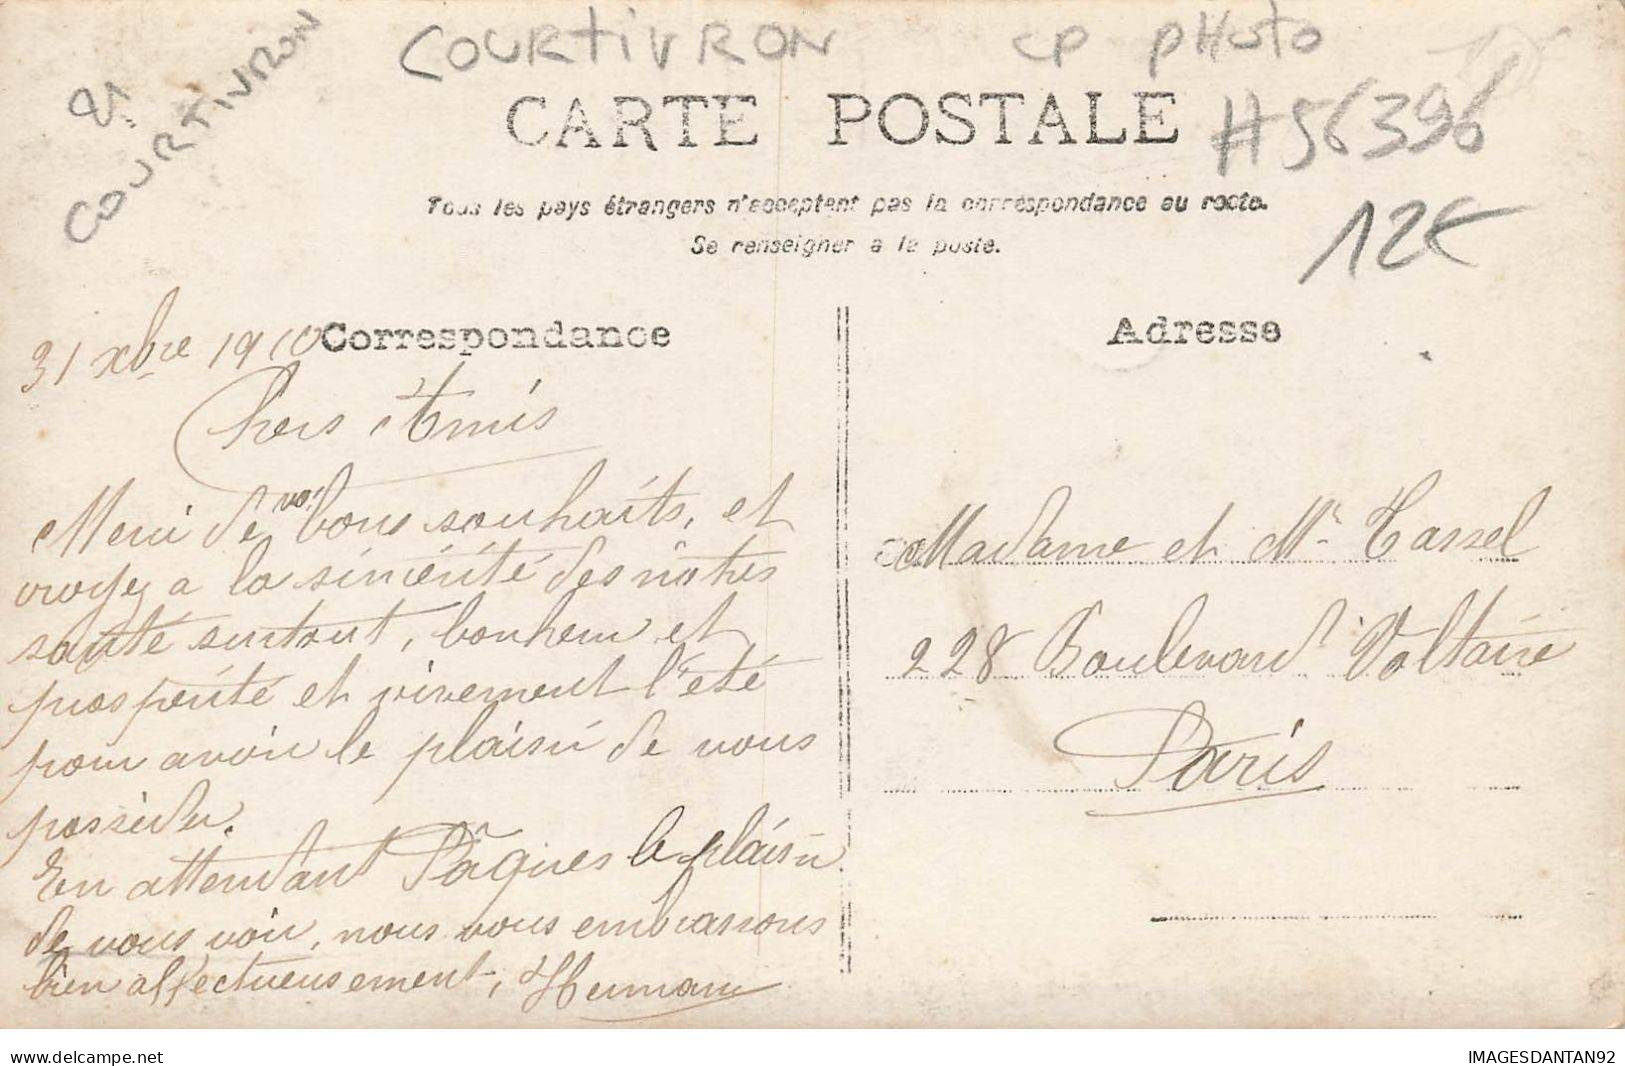 COURTIVRON CP PHOTO
21
COURTIVRON
CARTE POSTALE
H56396
Tous les pays étrangers n'acceptent pas la correspondance au recto.
Se renseigner à la poste.
12€
31 xbre 1910
Correspondance
Chers Amis
Merci de vos bons souhaits, et
croyez a la sincérité des notres
santé surtout, bonheur et
prospérité et vivement l'été
pour avoir le plaisir de vous
posséder.
En attendant Pâques le plaisir
de vous voir, nous vous embrassons
bien affectueusement,
Adresse
Madame et Mr Tassel
228 Boulevard Voltaire
Paris
delcampe.net
IMAGESDANTAN92